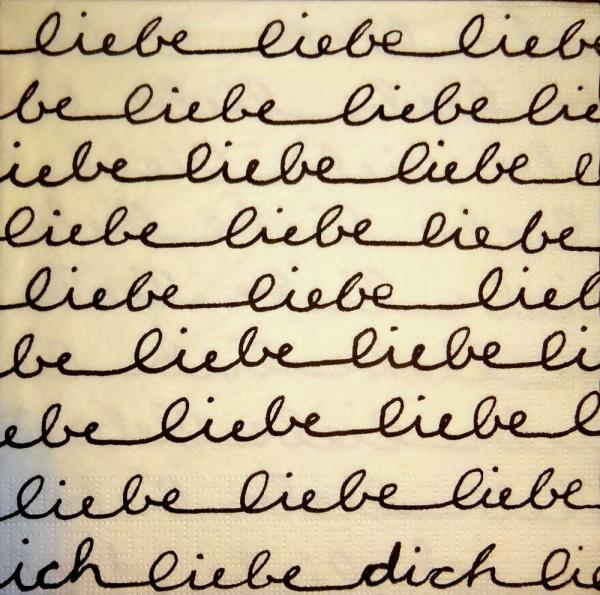 liebe liebe liebe
be liebe liebe lie
iebe liebe liebe l
liebe liebe liebe
liebe liebe lieb
be liebe liebe li
ebe liebe liebe l
liebe liebe liebe
ich liebe dich lie